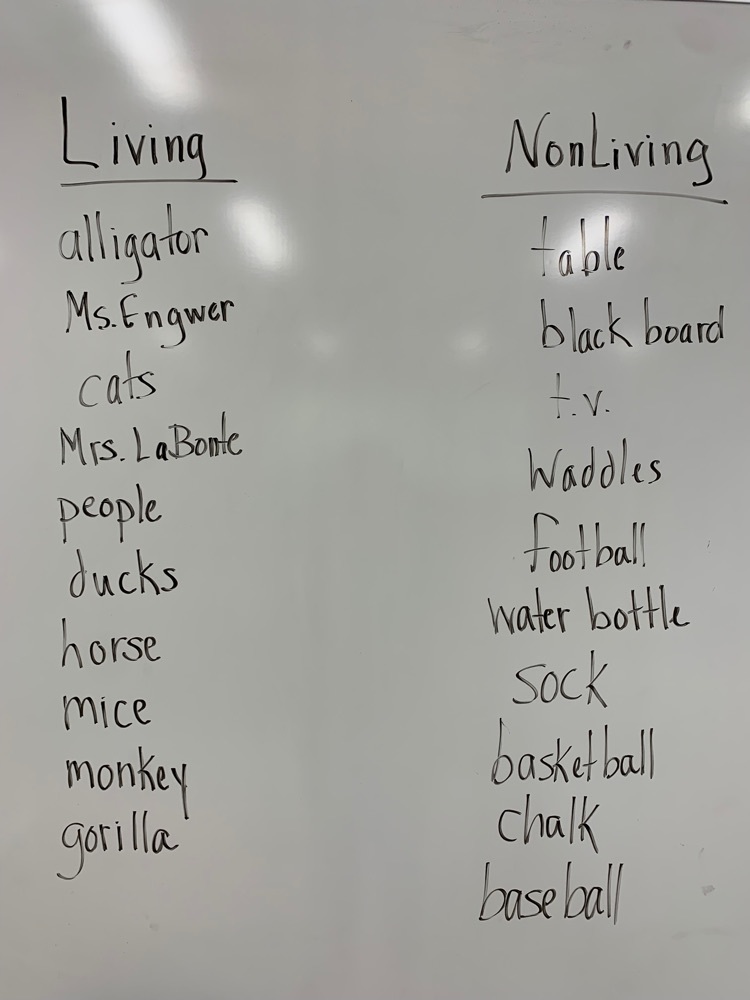 Living
alligator
Ms. Engwer
cats
Mrs. LaBonte
people
ducks
horse
mice
monkey
gorilla
NonLiving
table
black board
t.v.
Waddles
football
water bottle
sock
basketball
chalk
baseball